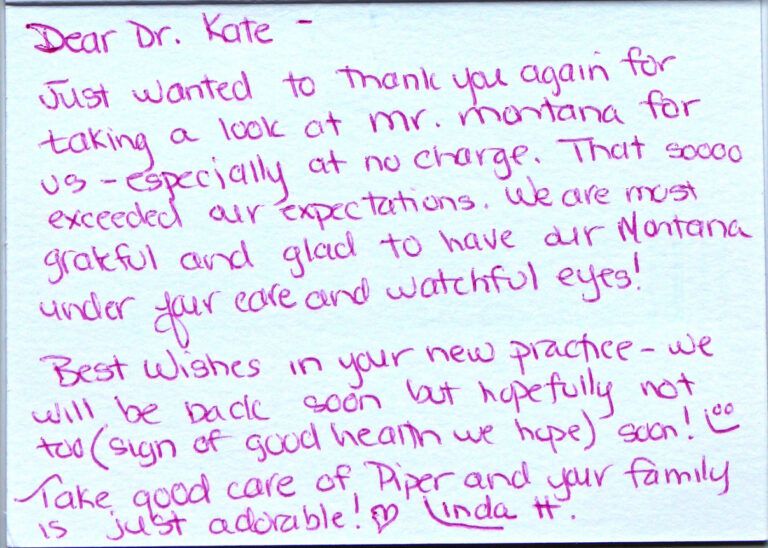 Dear Dr. Kate -
Just wanted to thank you again for
taking a look at Mr. Montana for
us - especially at no charge. That soooo
exceeded our expectations. We are most
grateful and glad to have our Montana
under your care and watchful eyes!
Best Wishes in your new practice - we
will be back soon but hopefully not
too (sign of good health we hope) soon!
Take good care of Piper and your family
is just adorable! Linda H.